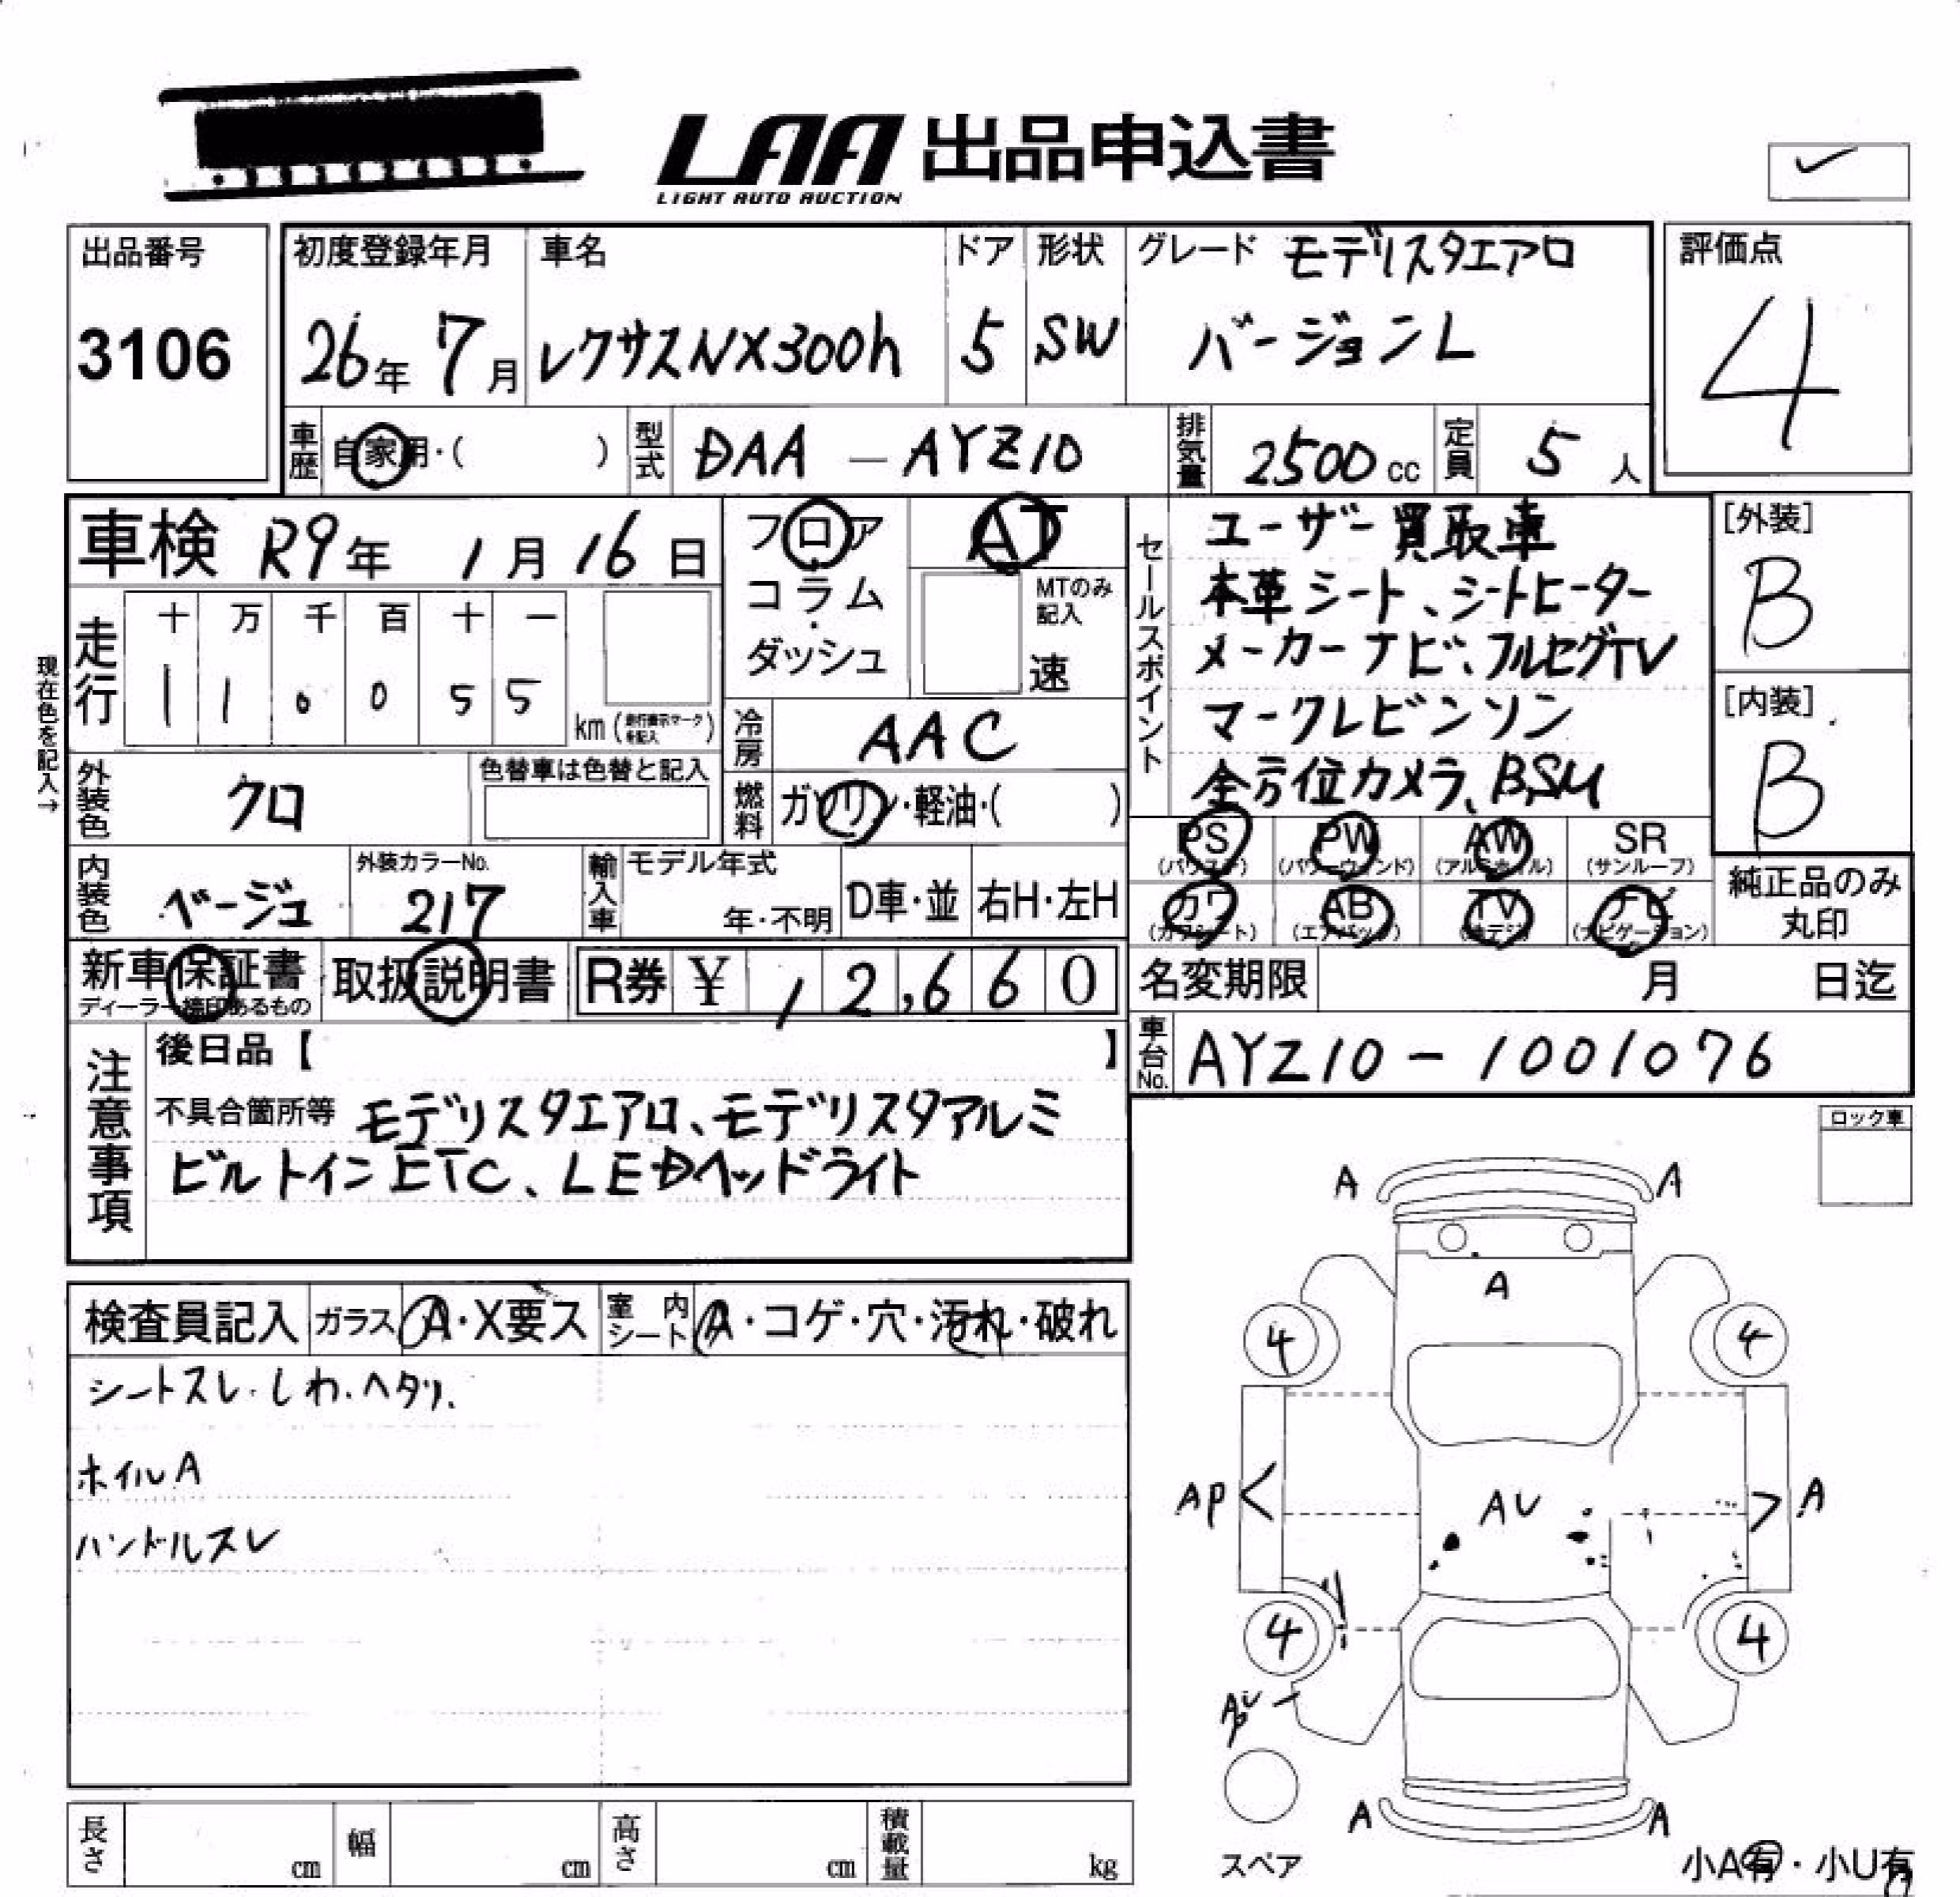 LAA 出品申込書
LIGHT AUTO AUCTION
出品番号
3106
初度登録年月
26年 7月
車名
レクサスNX300h
ドア
5
形状
SW
グレード モデリスタエアロ
バージョンL
評価点
4
車歴 自家用・( )
型式 DAA - AYZ10
排気量 2500 cc
定員 5 人
車検 R9年 1月16日
フロア
コラム
ダッシュ
AT
MTのみ
記入
速
セールスポイント
ユーザー買取車
本革シート、シートヒーター
メーカーナビ、フルセグTV
マークレビンソン
全方位カメラ、BSM
[外装]
B
[内装]
B
現在色を記入→
走行
十 万 千 百 十 一
1 1 0 0 5 5
km (走行表示マークを記入)
冷房 AAC
外装色 クロ
色替車は色替と記入
燃料 ガソリン・軽油・( )
PS (パワステ)
PW (パワーウィンド)
AW (アルミホイル)
SR (サンルーフ)
カワ (カワシート)
AB (エアバッグ)
TV (地デジ)
ナビ (ナビゲーション)
純正品のみ
丸印
内装色 ベージュ
外装カラーNo.
217
輸入車
モデル年式
年・不明
D車・並
右H・左H
新車保証書
ディーラー捺印あるもの
取扱説明書
R券 ¥ 12,660
名変期限 月 日迄
車台No. AYZ10-1001076
注意事項
後日品【 】
不具合箇所等 モデリスタエアロ、モデリスタアルミ
ビルトインETC、LEDヘッドライト
ロック車
検査員記入
ガラス A・X要ス
室内シート A・コゲ・穴・汚れ・破れ
シートスレ・しわ・ヘタリ.
ホイルA
ハンドルスレ
A A
A
4 4
AP < AU > A
4 4
A A
スペア
小A有・小U有
長さ cm
幅 cm
高さ cm
積載量 kg